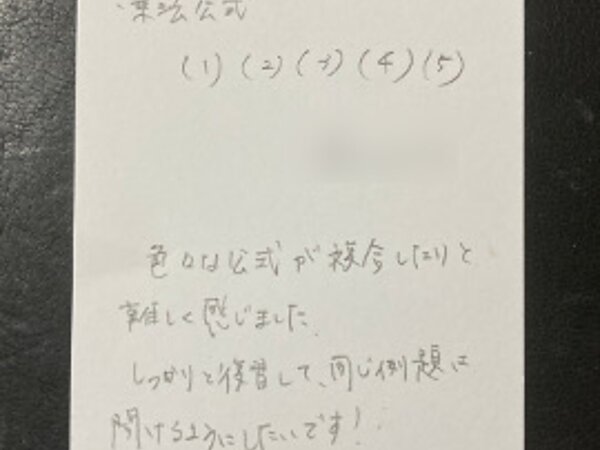 ・乗法公式
(1) (2) (3) (4) (5)
色々な公式が複合したりと
難しく感じました。
しっかりと復習して、同じ例題に
聞けるようにしたいです!